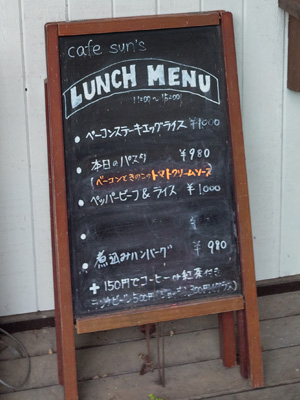 cafe sun's
LUNCH MENU
11:00～15:00
・ベーコンステーキエッグライス ¥1000
・本日のパスタ ¥980
(ベーコンときのこのトマトクリームソース)
・ペッパービーフ&ライス ¥1000
・煮込みハンバーグ ¥980
+150円でコーヒーor紅茶付き